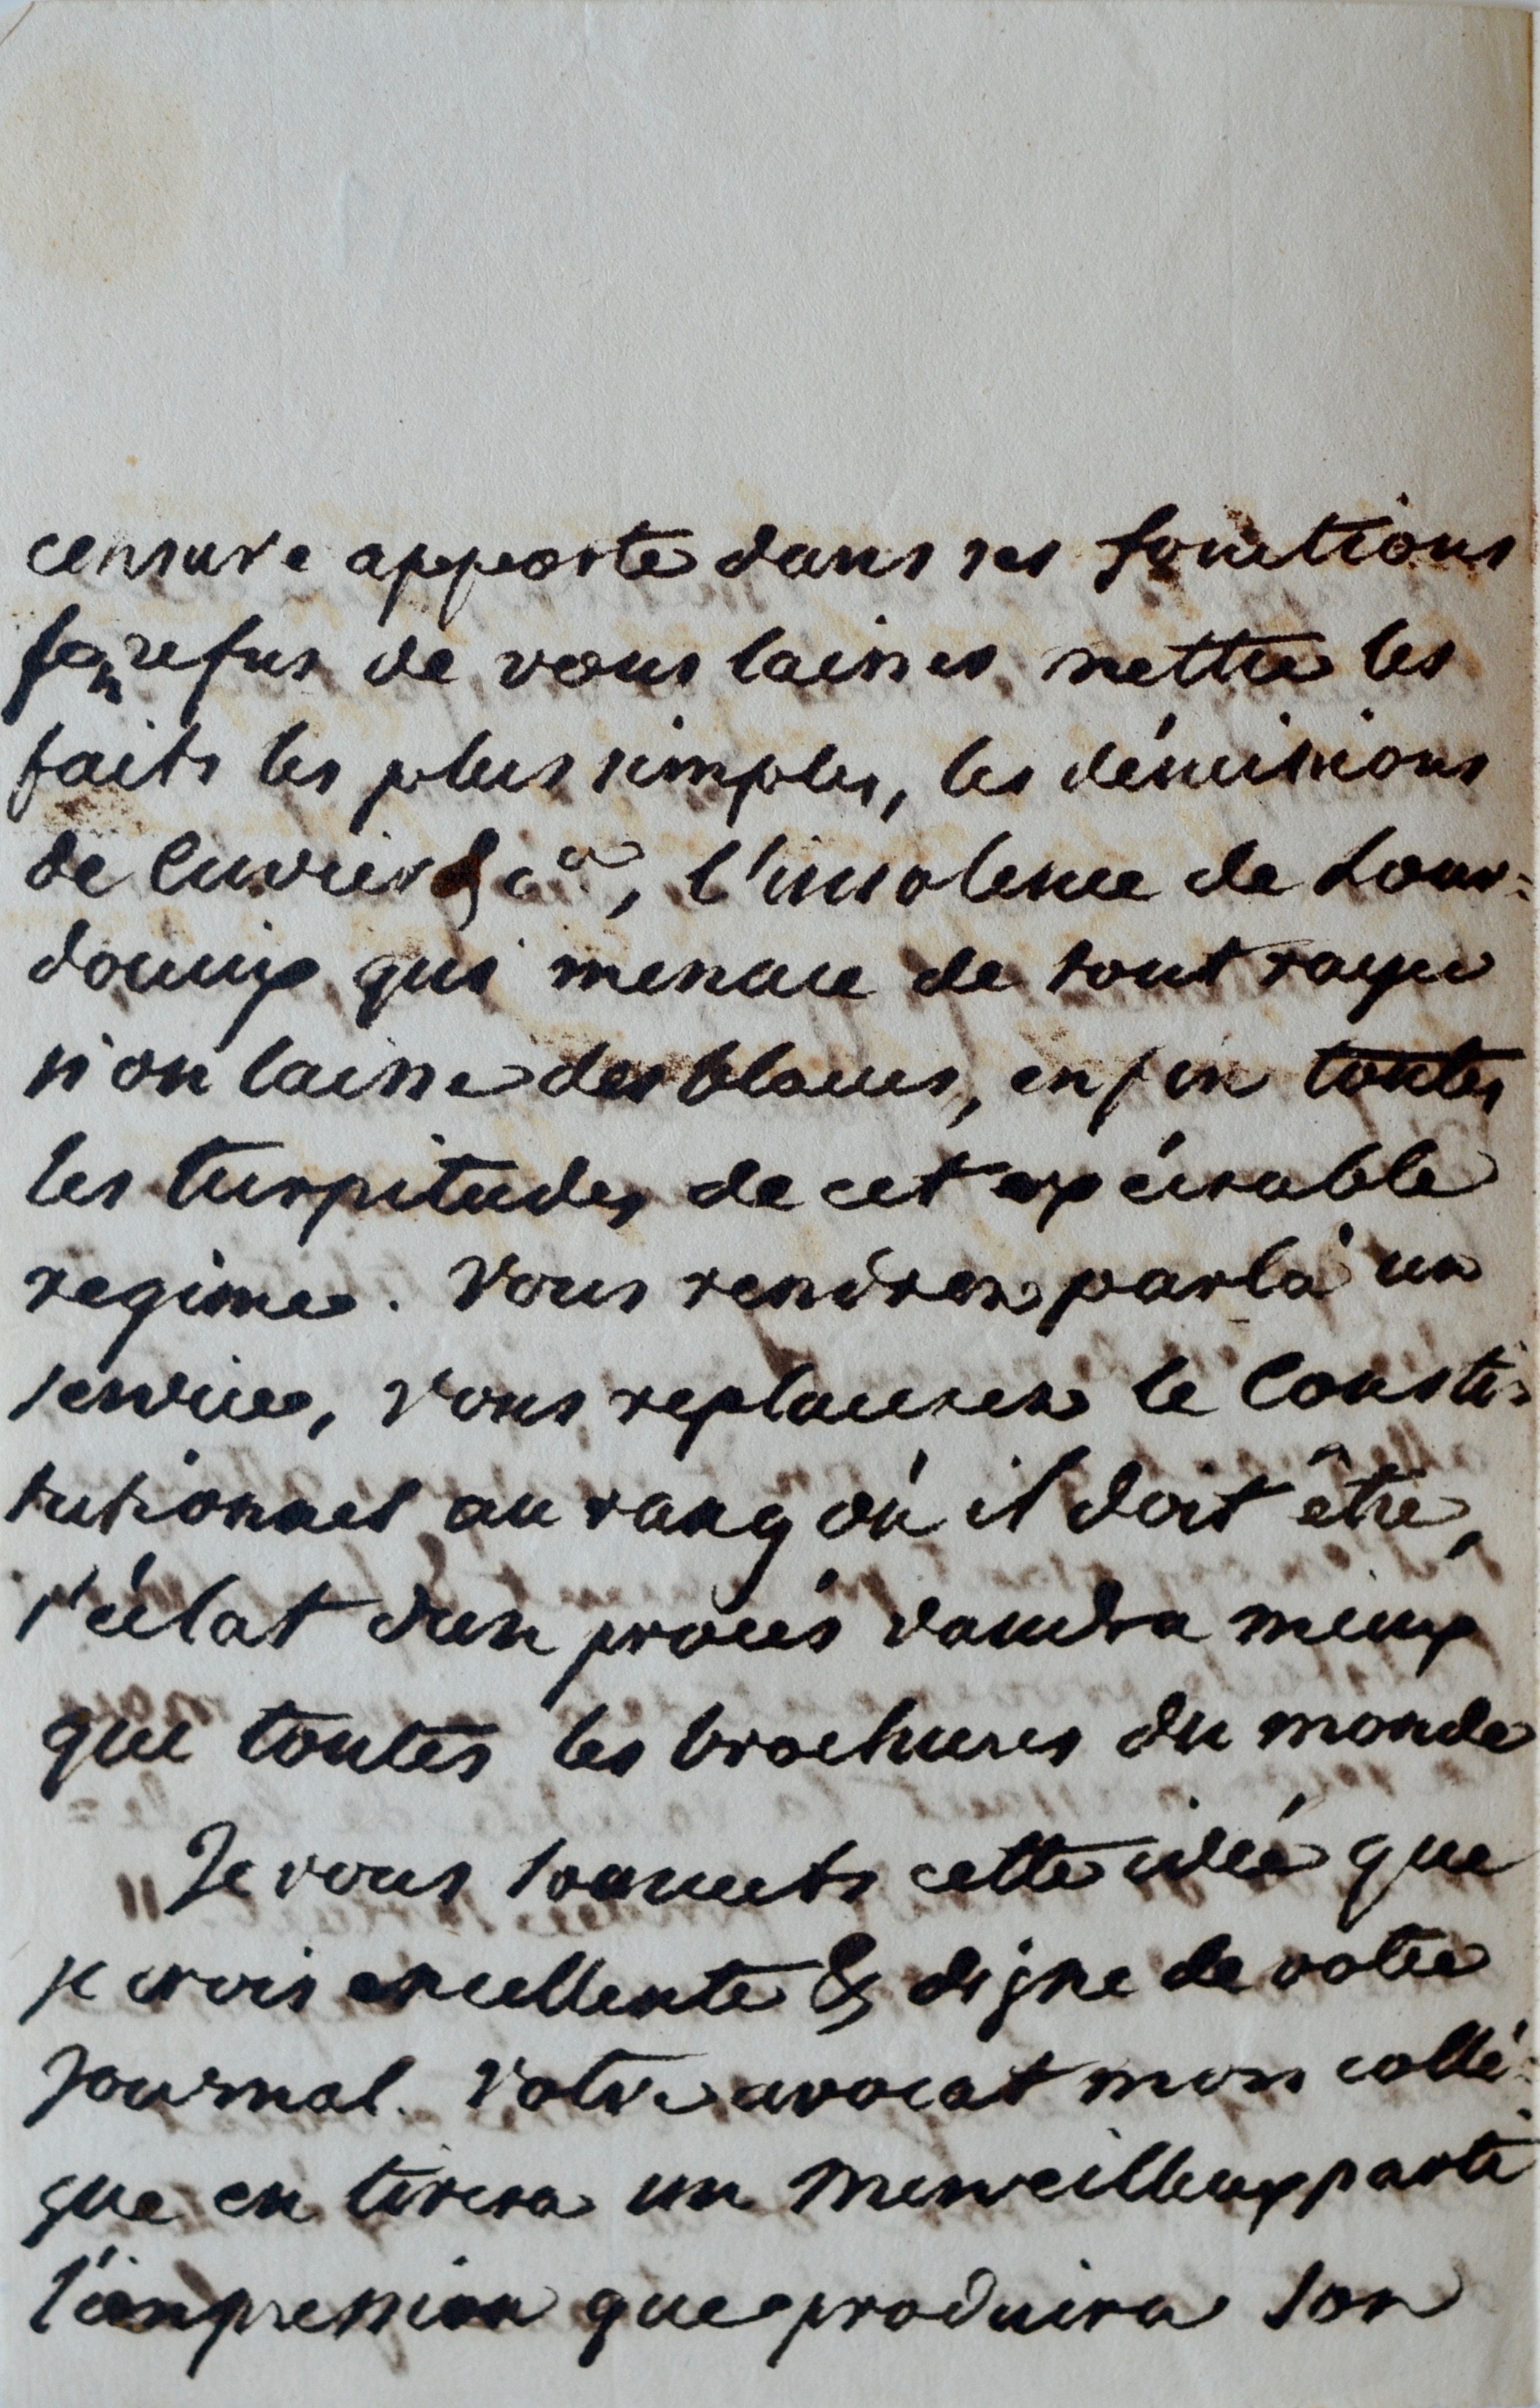 censure apporte dans ses fonctions
son refus de vous laisser mettre les
faits les plus simples, les démissions
de Cuvier & ca, l'insolence de Lour=
doueix qui menace de tout rayer
si on laisse des blancs, enfin toutes
les turpitudes de cet exécrable
regime. Vous rendrez par là un
service, vous replacerez le Consti=
tutionnel au rang où il doit être,
l'éclat d'un procès vaudra mieux
que toutes les brochures du monde
Je vous soumets cette idée que
je crois excellente & digne de votre
journal. Votre avocat mon collé=
gue en tirera un merveilleux parti
l'impression que produira son